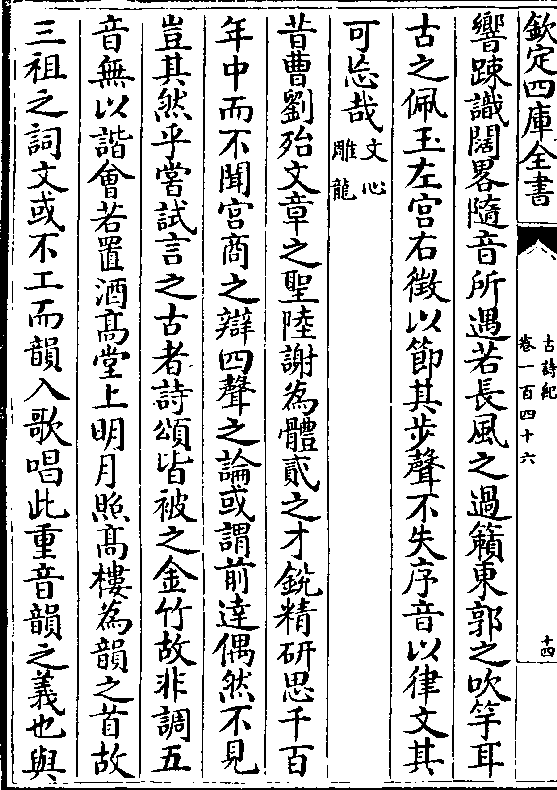 欽定四庫全書
古詩紀
卷一百四十六
十四
響踈識闊畧隨音所遇若長風之過籟東郭之吹竽耳
古之佩玉左宮右徵以節其步聲不失序音以律文其
可忽哉文心雕龍
昔曹劉殆文章之聖陸謝為體貳之才銳精研思千百
年中而不聞宮商之辯四聲之論或謂前達偶然不見
豈其然乎嘗試言之古者詩頌皆被之金竹故非調五
音無以諧會若置酒髙堂上明月照髙樓為韻之首故
三祖之詞文或不工而韻入歌唱此重音韻之義也與